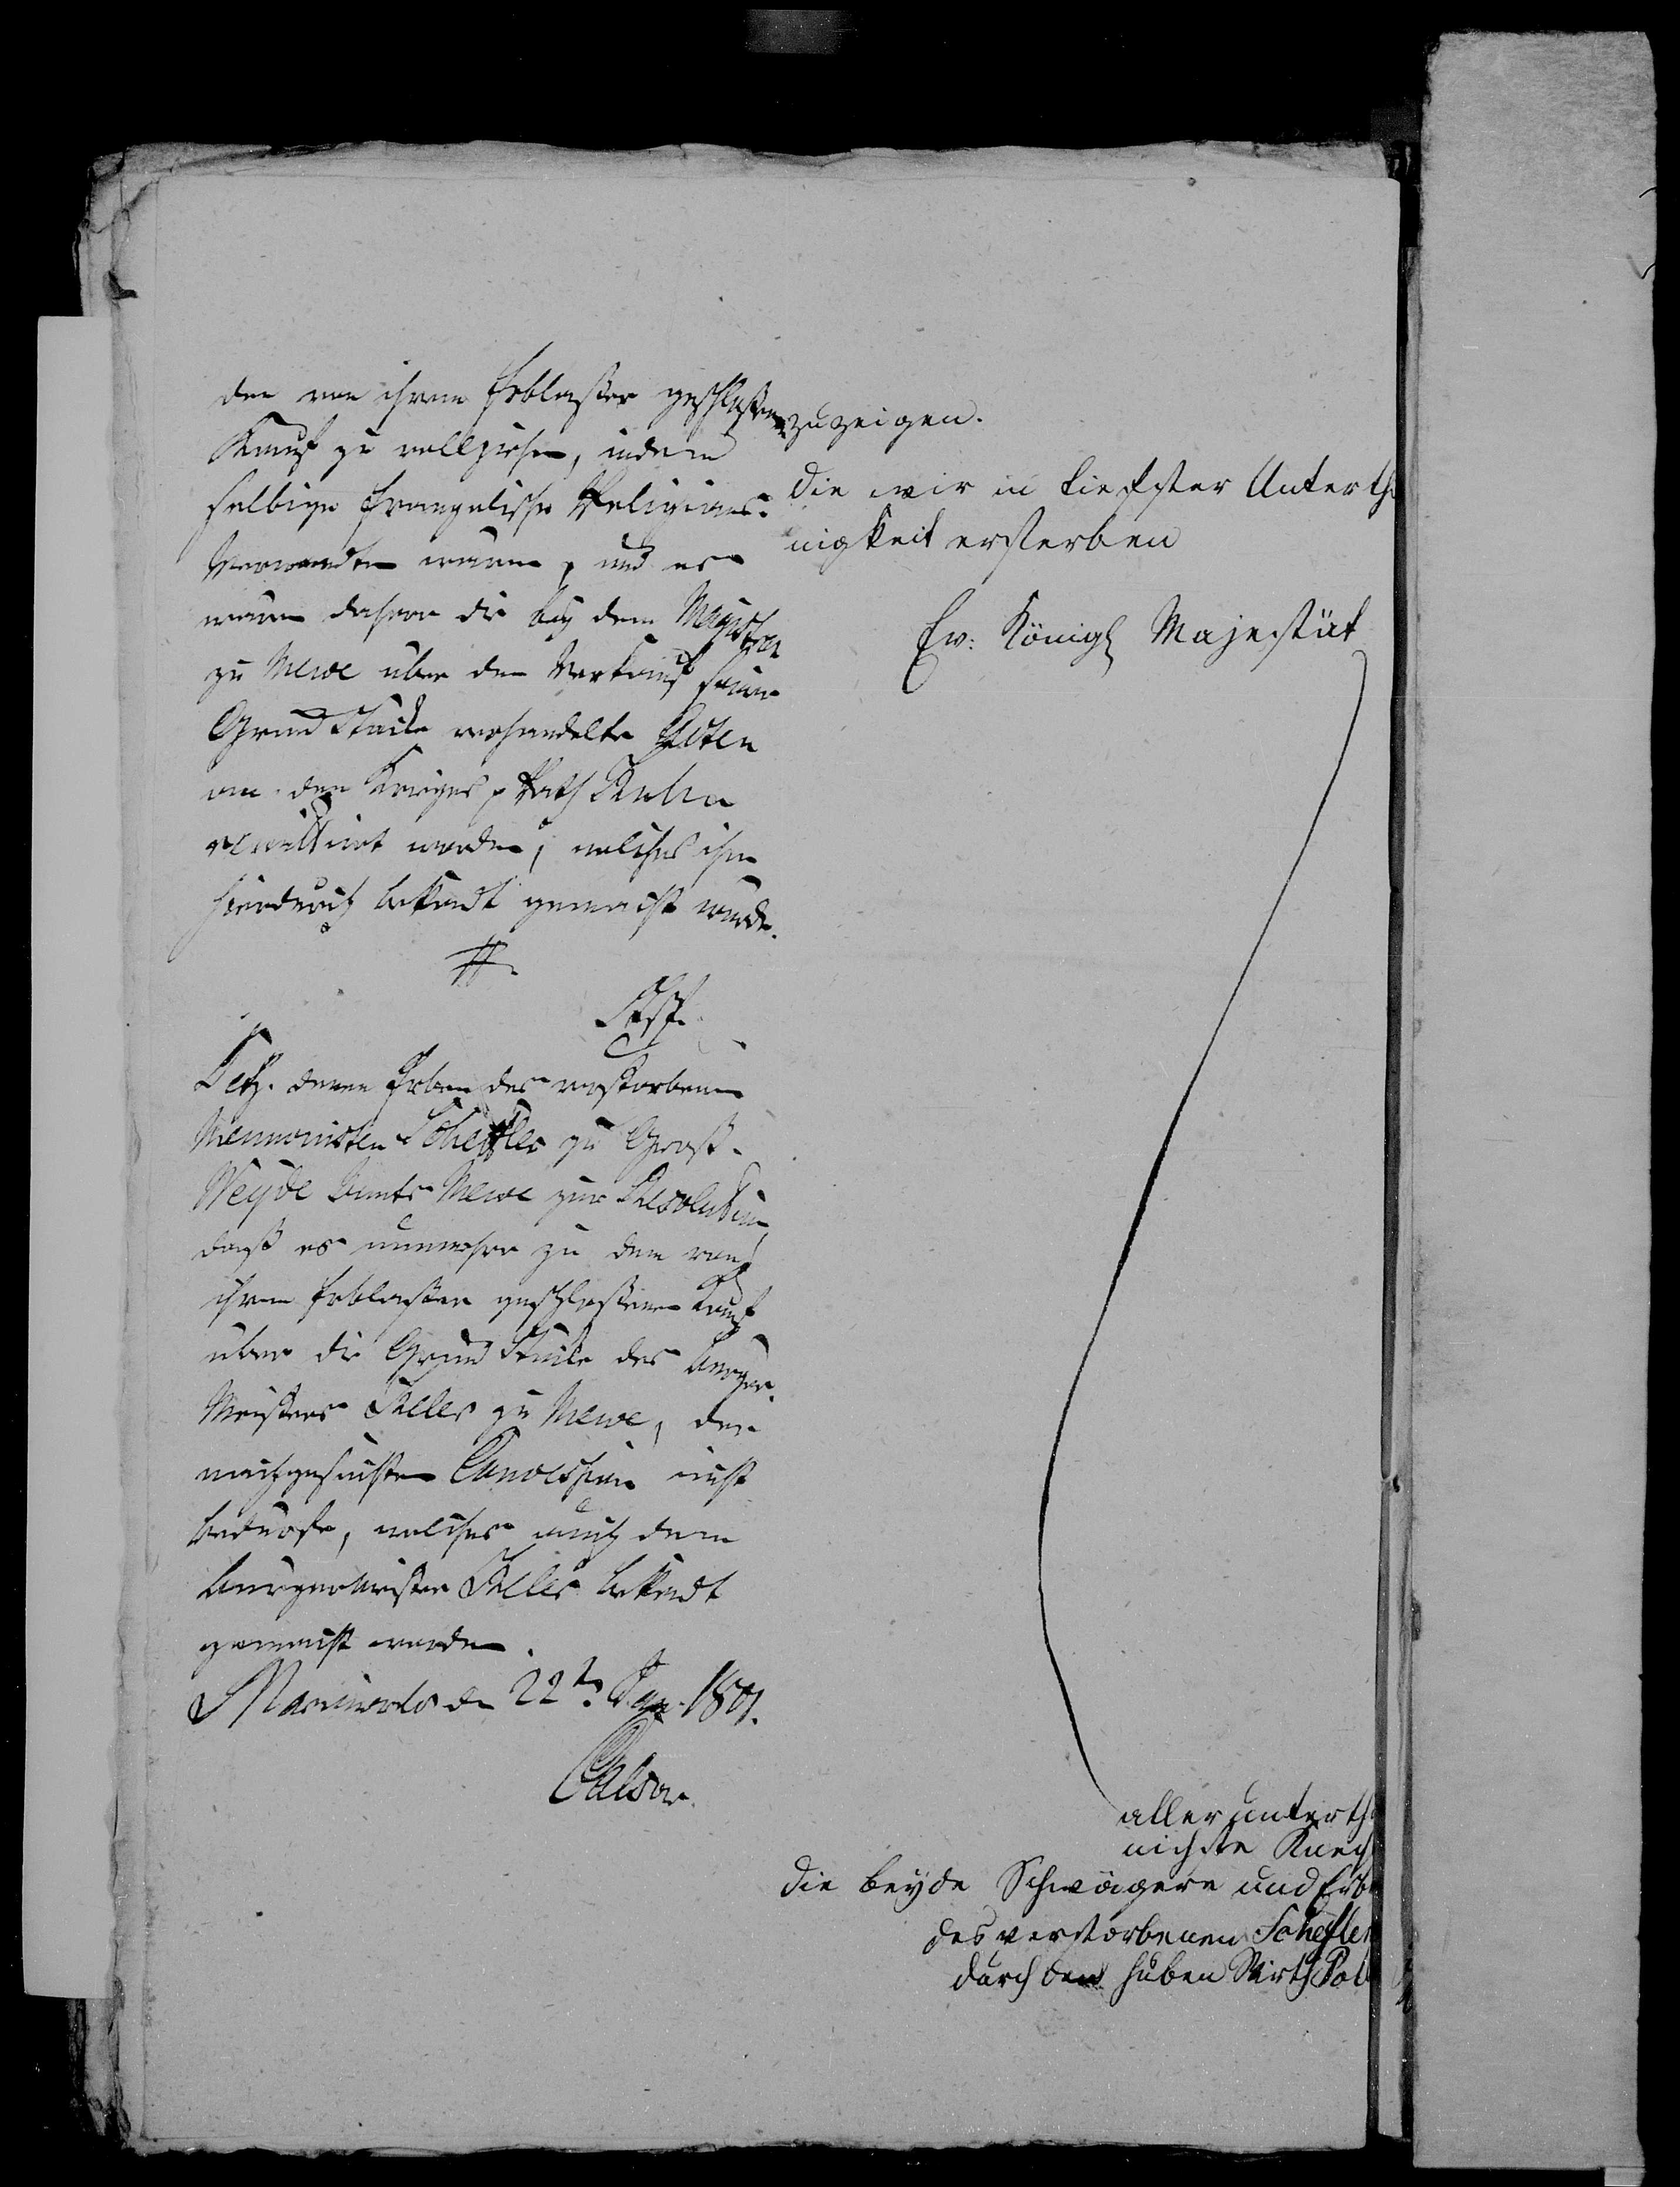 den von ihrem Erblasser geschlossenen
Kauf zu vollziehen, indem
selbige Evangelische Religions-
Verwandte wären, und es
wären daher die bey dem Magistrat
zu Mewe über den Verkauf seiner
Grund Stücke verhandelte Acten
an den Krieges Rath
remittirt worden, welches ihm
hierdurch bekandt gemacht würde.
Decr. denen Erben des verstorbenen
Mennonisten Scheffler zu Groß-
Weyde Amts Mewe zur Resolution
daß es nunmehro zu dem von
ihrem Erblasser geschlossenen Kauf
über die Grund Stücke des Burger-
Meisters zu Mewe, der
nachgesuchten Concession nicht
bedürfe, welches auch dem
Burgermeister bekandt
gemacht worden.
Marienwerder den 22ten Jan. 1801.
zuzeigen.
Die wir in tiefster Unterth
nigkeit ersterben
Ew: Königl Majestät
allerunterth
nigste Knech
Die beyde Schwägere und Erb
des verstorbenen Schefler
durch den Huben Wirth